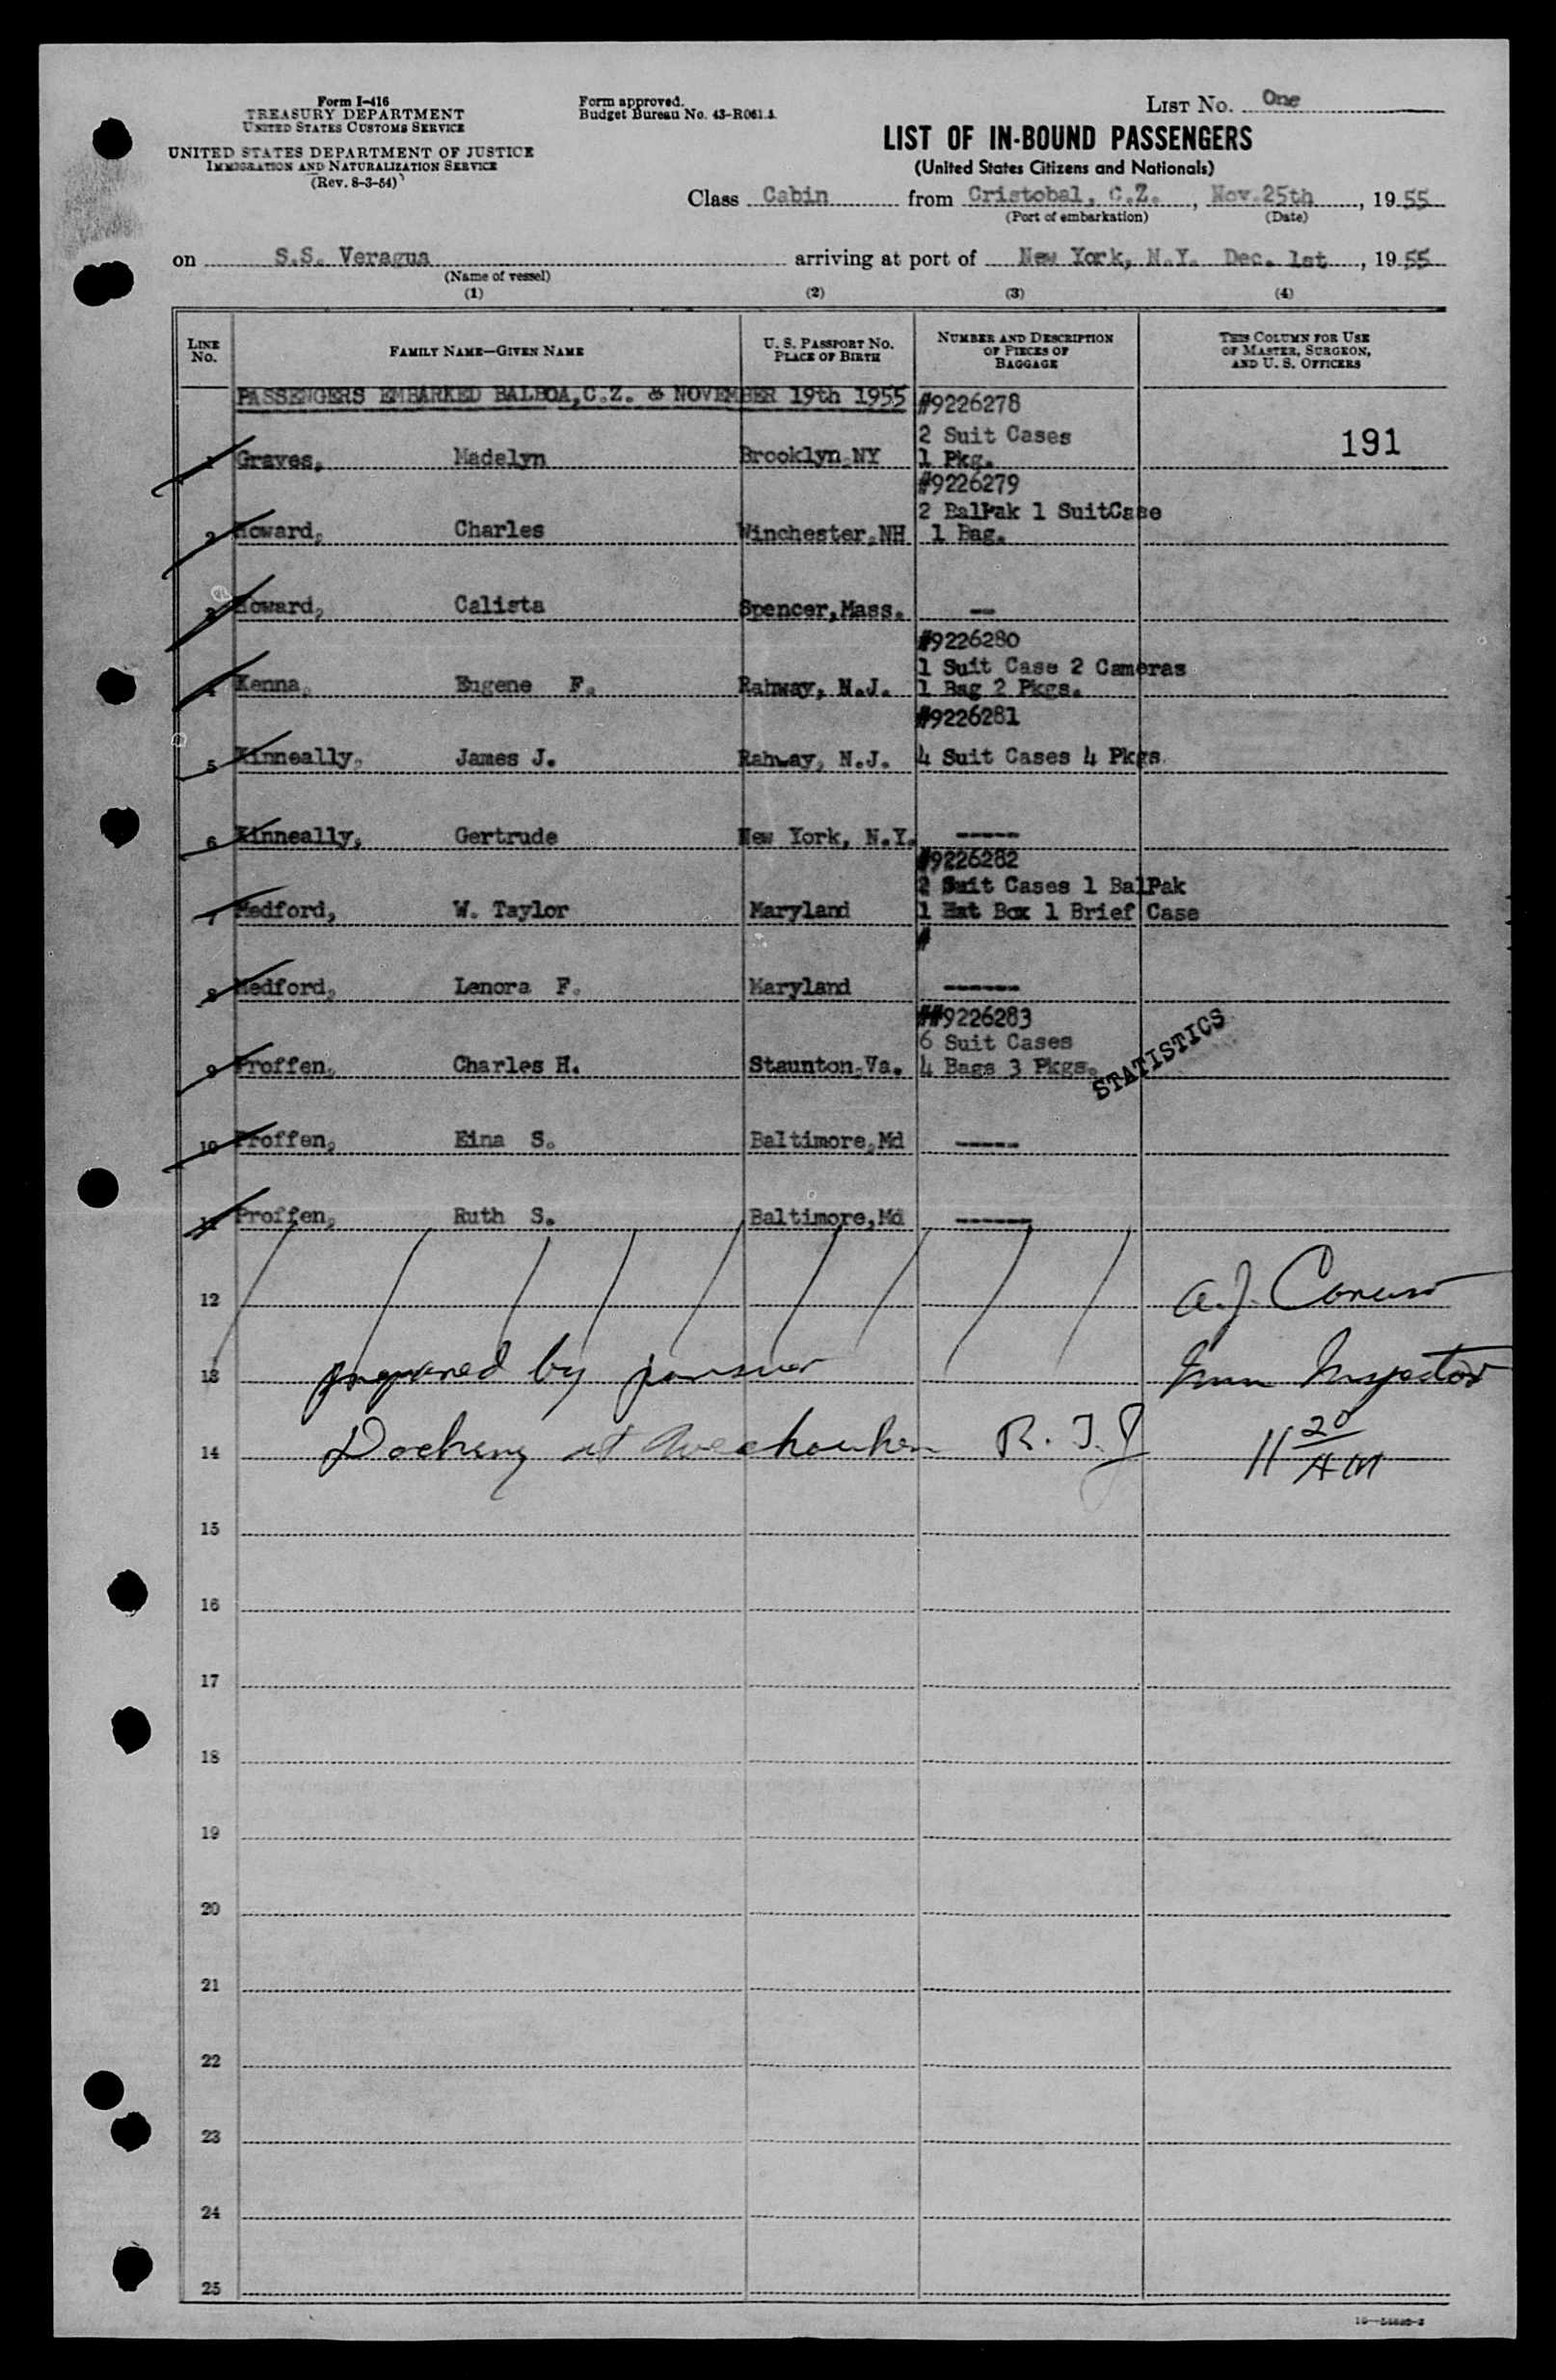 Form I-416
TREASURY DEPARTMENT
UNITED STATES CUSTOMS SERVICE
UNITED STATES DEPARTMENT OF JUSTICE
IMMIGRATION AND NATURALIZATION SERVICE
(Rev. 8-3-54)
Form approved.
Budget Bureau No. 43-R061.3.
LIST No. One
LIST OF IN-BOUND PASSENGERS
(United States Citizens and Nationals)
Class Cabin from Cristobal, C.Z., Nov.25th, 1955
(Port of embarkation) (Date)
on S.S. Veragua arriving at port of New York, N.Y. Dec. 1st, 1955
(Name of vessel)
(1) (2) (3) (4)
LINE No. FAMILY NAME—GIVEN NAME U. S. PASSPORT NO. PLACE OF BIRTH NUMBER AND DESCRIPTION OF PIECES OF BAGGAGE THIS COLUMN FOR USE OF MASTER, SURGEON, AND U. S. OFFICERS
PASSENGERS EMBARKED BALBOA,C.Z. & NOVEMBER 19th 1955 #9226278
2 Suit Cases 191
1 Graves, Madelyn Brooklyn,NY 1 Pkg.
#9226279
2 BalPak 1 SuitCase
2 Howard, Charles Winchester,NH 1 Bag.
3 Howard, Calista Spencer,Mass. --
#9226280
1 Suit Case 2 Cameras
4 Kenna, Eugene F. Rahway, N.J. 1 Bag 2 Pkgs.
#9226281
5 Kinneally, James J. Rahway, N.J. 4 Suit Cases 4 Pkgs.
6 Kinneally, Gertrude New York, N.Y. -----
#9226282
2 Suit Cases 1 BalPak
7 Medford, W. Taylor Maryland 1 Hat Box 1 Brief Case
#
8 Medford, Lenora F. Maryland ------
##9226283
6 Suit Cases
9 Proffen, Charles H. Staunton,Va. 4 Bags 3 Pkgs.
STATISTICS
10 Proffen, Eina S. Baltimore,Md -----
11 Proffen, Ruth S. Baltimore,Md ------
12 A.J. Caruso
13 prepared by purser Imm Inspector
14 Docking at Weehawken R.I.J 11 20 AM
15
16
17
18
19
20
21
22
23
24
25